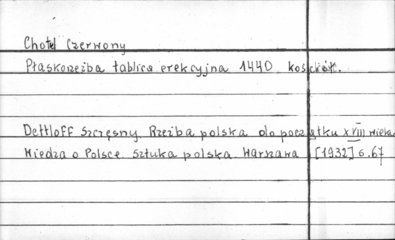 Chotel Czerwony
Płaskorzeźba tablica erekcyjna 1440 kościół.
Dettloff Szczęsny Rzeźba polska do początku XVIII wieku
Wiedza o Polsce Sztuka polska Warszawa [1932] s. 67